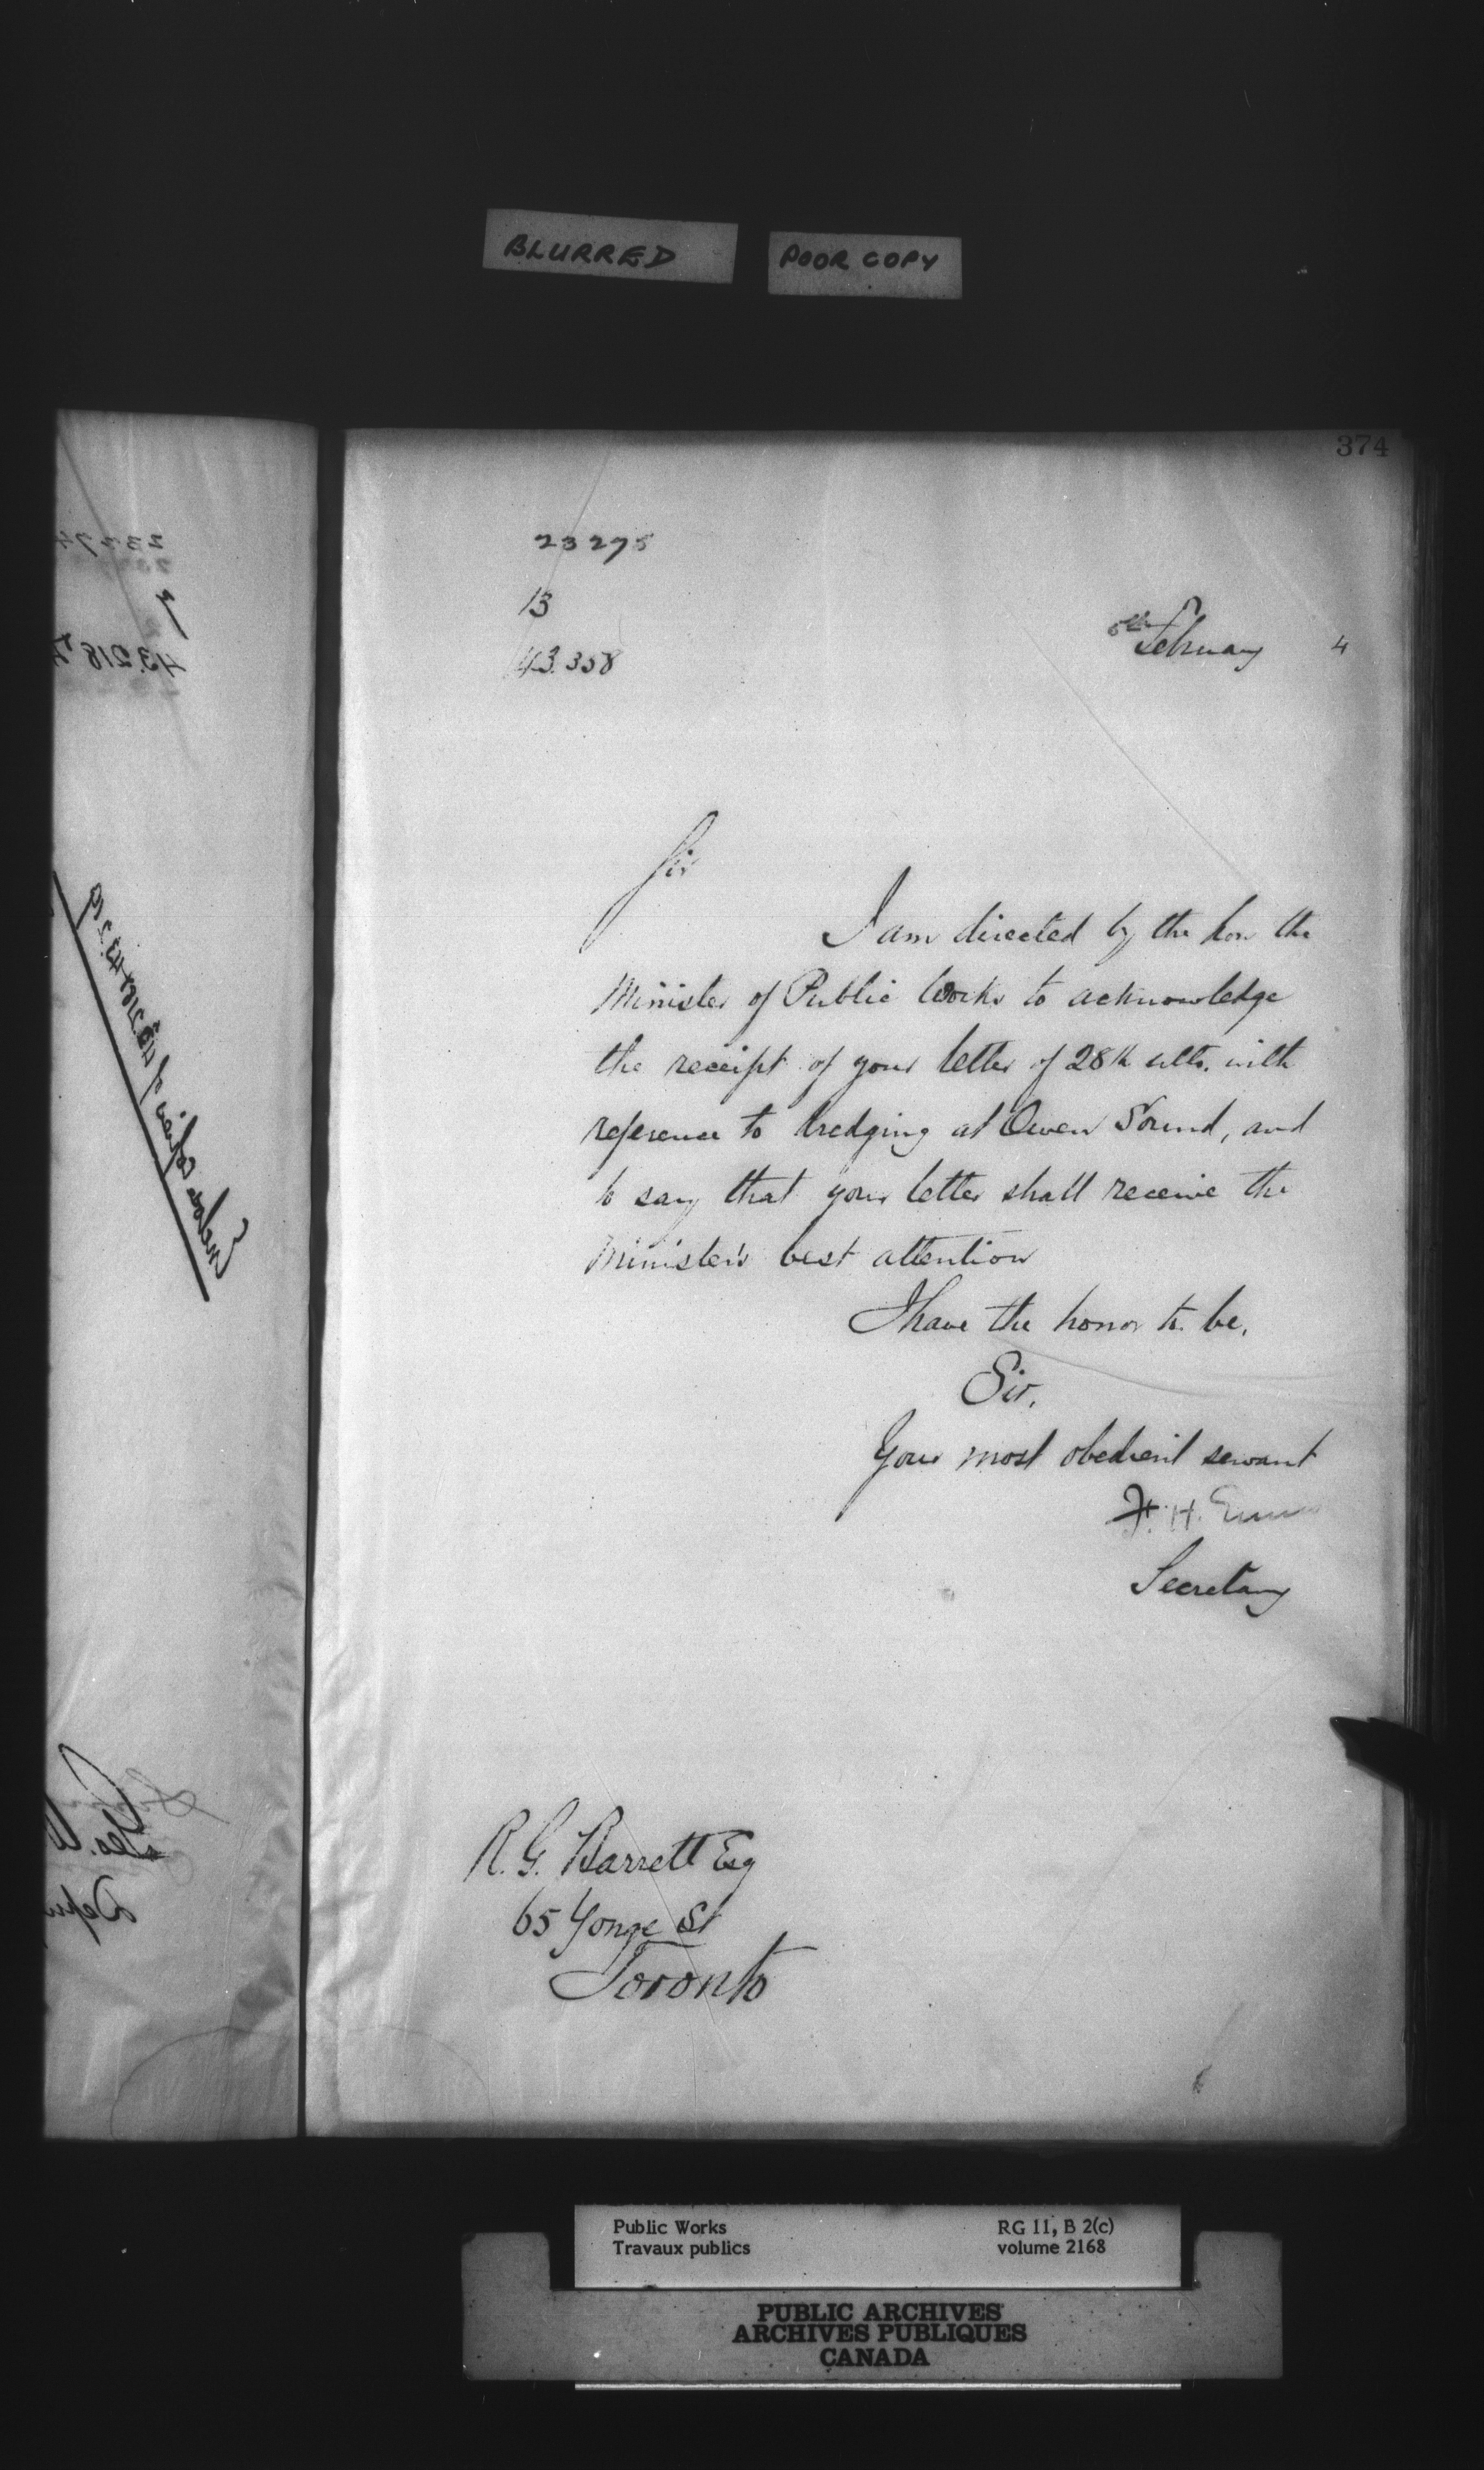 BLURRED
POOR COPY
374
23275
13
43.358
5th February 4
Sir
I am directed by the hon the
Minister of Public Works to acknowledge
the receipt of your letter of 28th ulto. with
reference to dredging at Owen Sound, and
to say that your letter shall receive the
Minister's best attention
I have the honor to be,
Sir,
Your most obedient servant
F. H. Ennis
Secretary
R. G. Barrett Esq
65 Yonge St
Toronto
Public Works
Travaux publics
RG 11, B 2(c)
volume 2168
PUBLIC ARCHIVES
ARCHIVES PUBLIQUES
CANADA